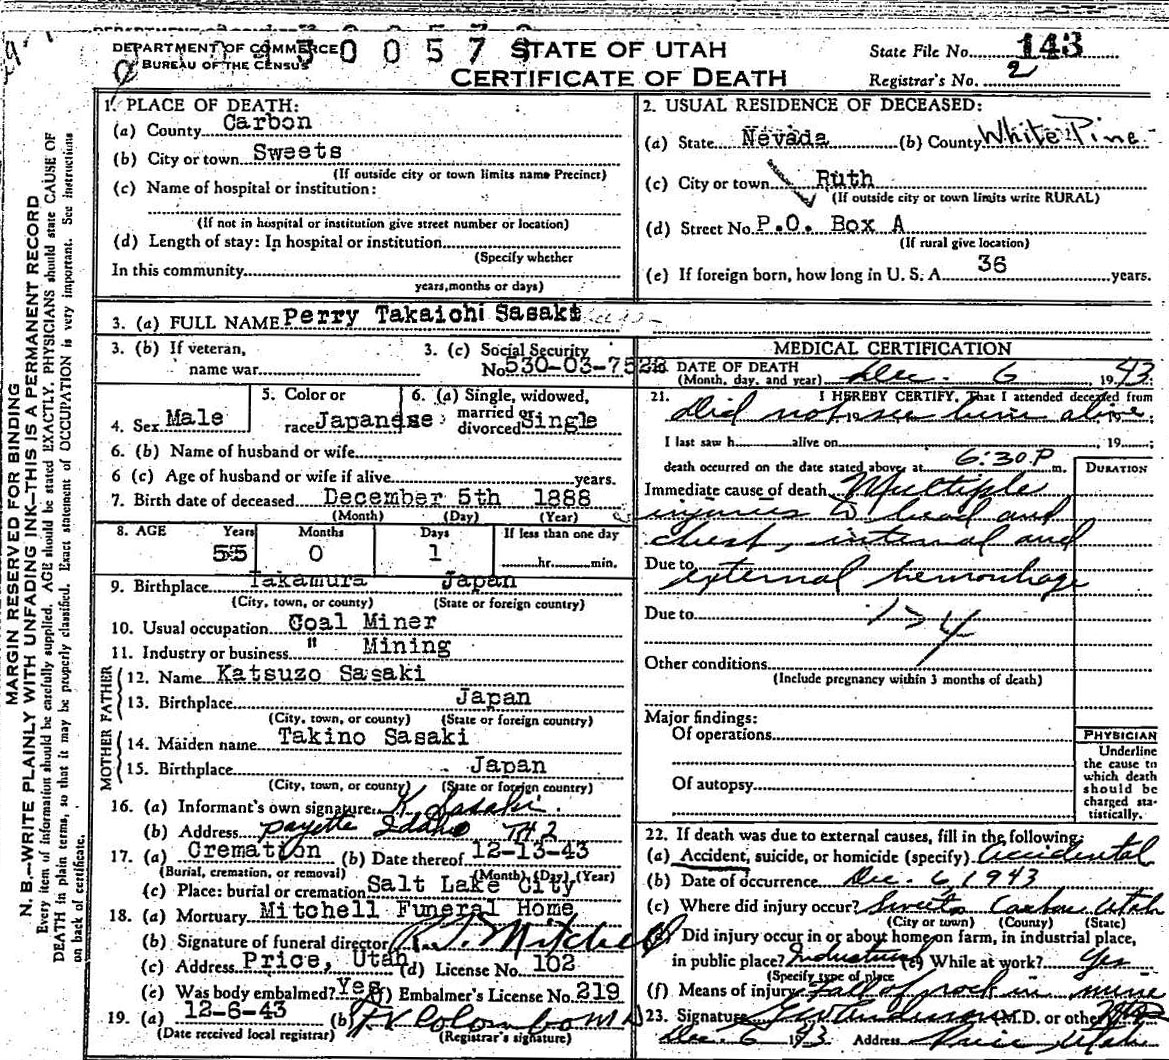 DEPARTMENT OF COMMERCE
BUREAU OF THE CENSUS
STATE OF UTAH
CERTIFICATE OF DEATH
State File No. 143
Registrar's No. 2
MARGIN RESERVED FOR BINDING
N. B.—WRITE PLAINLY WITH UNFADING INK—THIS IS A PERMANENT RECORD
Every item of information should be carefully supplied. AGE should be stated EXACTLY. PHYSICIANS should state CAUSE OF
DEATH in plain terms, so that it may be properly classified. Exact statement of OCCUPATION is very important. See instructions
on back of certificate.
1. PLACE OF DEATH:
(a) County Carbon
(b) City or town Sweets
(If outside city or town limits name Precinct)
(c) Name of hospital or institution:
(If not in hospital or institution give street number or location)
(d) Length of stay: In hospital or institution
(Specify whether
In this community
years, months or days)
2. USUAL RESIDENCE OF DECEASED:
(a) State Nevada (b) County White Pine
(c) City or town Ruth
(If outside city or town limits write RURAL)
(d) Street No. P.O. Box A
(If rural give location)
(e) If foreign born, how long in U. S. A. 36 years.
3. (a) FULL NAME Perry Takaichi Sasaki
3. (b) If veteran,
name war
3. (c) Social Security
No. 530-03-7522
4. Sex Male
5. Color or
race Japanese
6. (a) Single, widowed,
married or
divorced Single
6. (b) Name of husband or wife
6 (c) Age of husband or wife if alive years.
7. Birth date of deceased December 5th 1888
(Month) (Day) (Year)
8. AGE Years Months Days If less than one day
55 0 1 hr. min.
9. Birthplace Takamura Japan
(City, town, or county) (State or foreign country)
10. Usual occupation Coal Miner
11. Industry or business " Mining
FATHER
12. Name Katsuzo Sasaki
13. Birthplace Japan
(City, town, or county) (State or foreign country)
MOTHER
14. Maiden name Takino Sasaki
15. Birthplace Japan
(City, town, or county) (State or foreign country)
16. (a) Informant's own signature K Sasaki
(b) Address Payette Idaho
17. (a) Cremation (b) Date thereof 12-13-43
(Burial, cremation, or removal) (Month) (Day) (Year)
(c) Place: burial or cremation Salt Lake City
18. (a) Mortuary Mitchell Funeral Home
(b) Signature of funeral director Mitchell
(c) Address Price, Utah (d) License No. 102
(e) Was body embalmed? Yes (f) Embalmer's License No. 219
19. (a) 12-6-43 (b) Colombo
(Date received local registrar) (Registrar's signature)
MEDICAL CERTIFICATION
20. DATE OF DEATH
(Month, day, and year) Dec. 6, 1943
21. I HEREBY CERTIFY, That I attended deceased from
Did not see him alive 19
I last saw h alive on 19 ;
death occurred on the date stated above, at 6:30 P m.
DURATION
Immediate cause of death Multiple
injuries to head and
chest, internal and
Due to external hemorrhage
Due to
Other conditions
(Include pregnancy within 3 months of death)
Major findings:
Of operations
Of autopsy
PHYSICIAN
Underline
the cause to
which death
should be
charged sta-
tistically.
22. If death was due to external causes, fill in the following:
(a) Accident, suicide, or homicide (specify) Accidental
(b) Date of occurrence Dec. 6 1943
(c) Where did injury occur? Sweets Carbon Utah
(City or town) (County) (State)
(d) Did injury occur in or about home, on farm, in industrial place,
in public place? Industrial (e) While at work? Yes
(Specify type of place
(f) Means of injury Fall of rock in mine
23. Signature (M.D. or other)
Dec. 6 1943 Address Price Utah